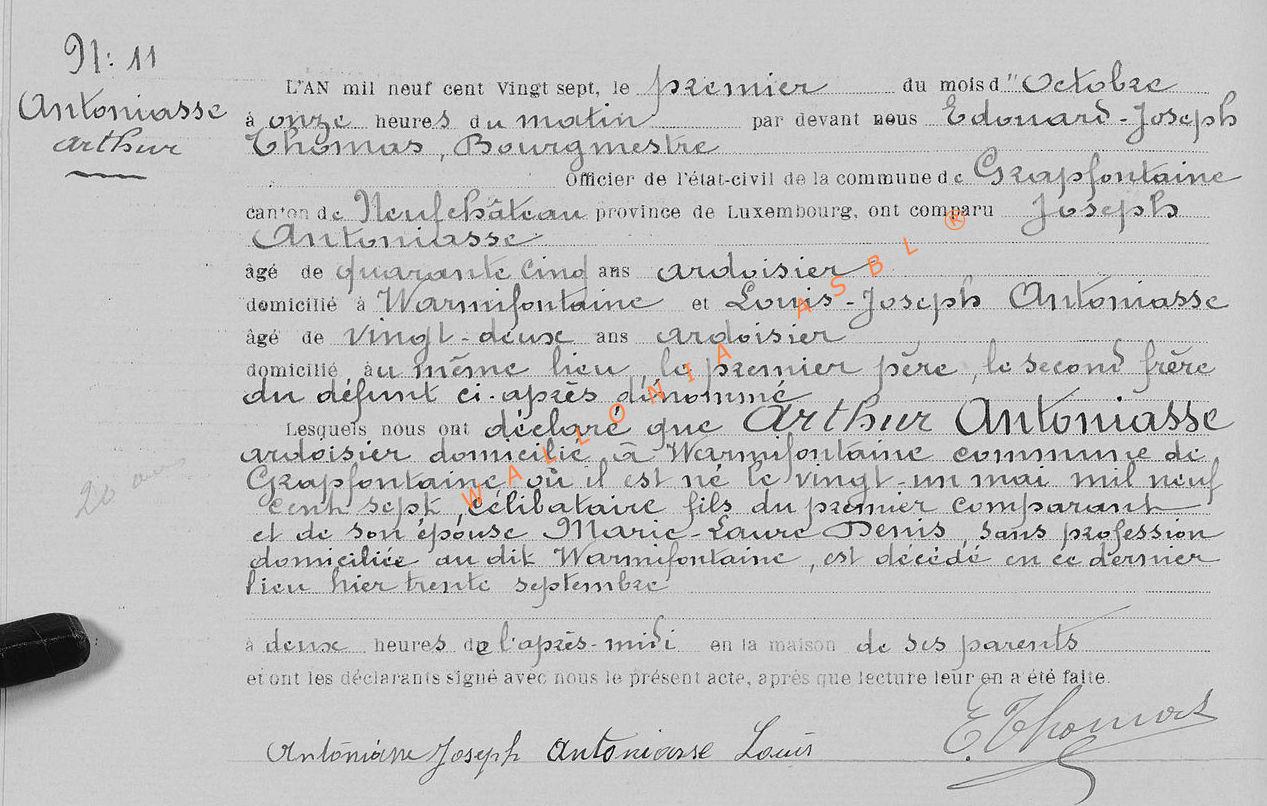 N: 11
Antoniasse
Arthur
L'AN mil neuf cent Vingt sept, le premier du mois d'' Octobre
à onze heures du matin par devant nous Edouard-Joseph
Thomas, Bourgmestre
Officier de l'état-civil de la commune de Grapfontaine
canton de Neufchâteau province de Luxembourg, ont comparu Joseph
Antoniasse
âgé de quarante cinq ans ardoisier
domicilié à Warmifontaine et Louis-Joseph Antoniasse
âgé de vingt-deux ans ardoisier
domicilié au même lieu, le premier père, le second frère
du défunt ci-après dénommé
Lesquels nous ont déclaré que Arthur Antoniasse
ardoisier domicilié à Warmifontaine commune de
Grapfontaine où il est né le vingt-un mai mil neuf
cent sept, célibataire fils du premier comparant
et de son épouse Marie-Laure Denis, sans profession
domiciliée au dit Warmifontaine, est décédé en ce dernier
lieu hier trente septembre
20 ans
à deux heures de l'après-midi en la maison de ses parents
et ont les déclarants signé avec nous le présent acte, après que lecture leur en a été faite.
Antoniasse Joseph Antoniasse Louis E. Thomas
WALLONIA ASBL ®